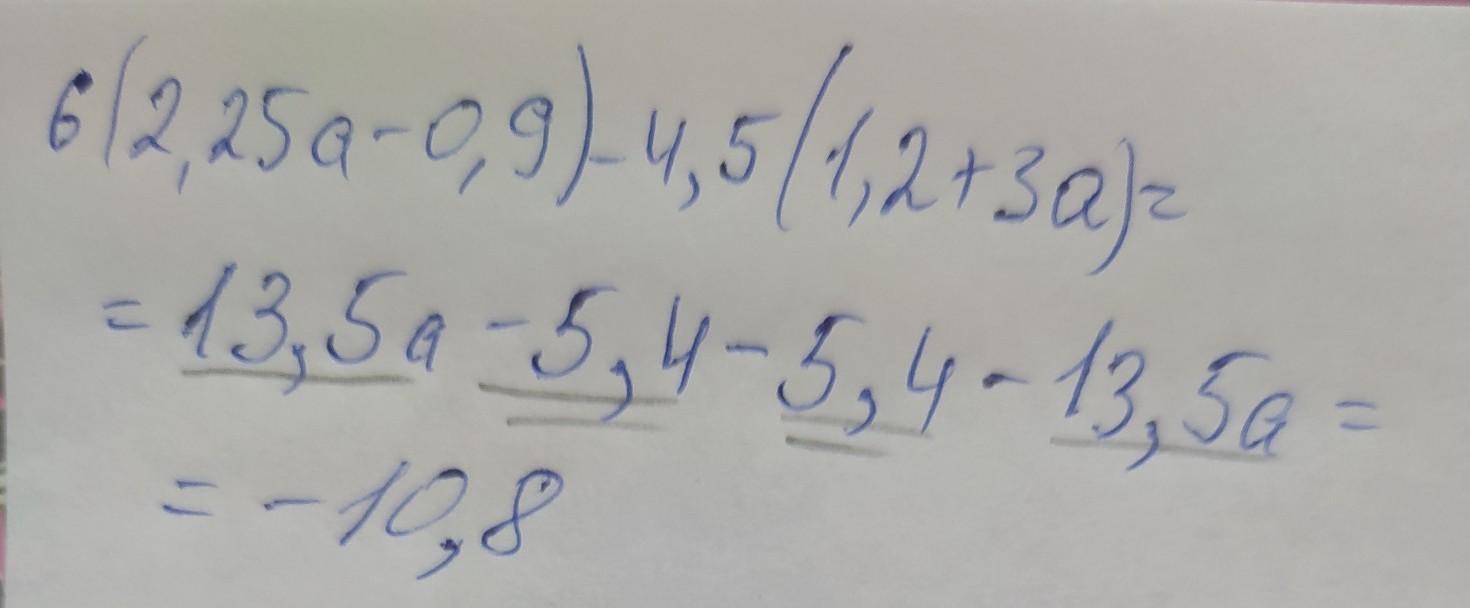 6(2,25a-0,9)-4,5(1,2+3a)=
=13,5a-5,4-5,4-13,5a=
=-10,8